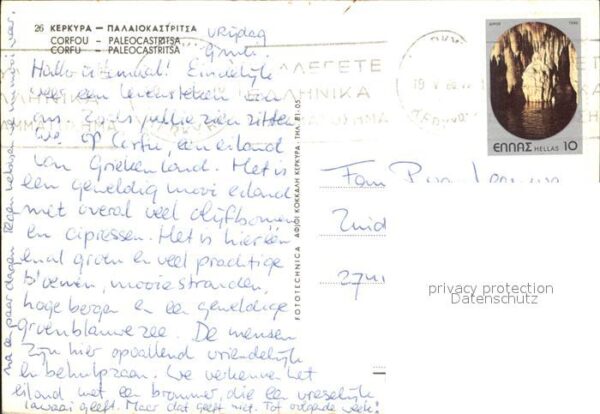 26 ΚΕΡΚΥΡΑ – ΠΑΛΑΙΟΚΑΣΤΡΙΤΣΑ
CORFOU – PALEOCASTRITSA
CORFU – PALEOCASTRITSA
vrijdag
Hallo allemaal! Eindelijk
weer een levensteken van
ons. Zoals jullie zien zitten
we op Corfu, een eiland
van Griekenland. Het is
een geweldig mooi eiland
met overal veel olijfbomen
en cipressen. Het is hier één
en al groen en veel prachtige
bloemen, mooie stranden,
hoge bergen en een geweldige
groenblauwe zee. De mensen
zijn hier opvallend vriendelijk
en behulpzaam. We verkennen het
eiland met een brommer, die een vreselijk
lawaai geeft. Maar dat geeft niet. Tot volgende week!
na een paar dagen regen hebben we mooi weer.
ΦΟΤΟTECHNICA ΑΦΟΙ ΚΟΚΚΑΛΗ ΚΕΡΚΥΡΑ - ΤΗΛ. 81-05
ΕΛΛΑΣ HELLAS 10
Fam
Zuid
privacy protection
Datenschutz